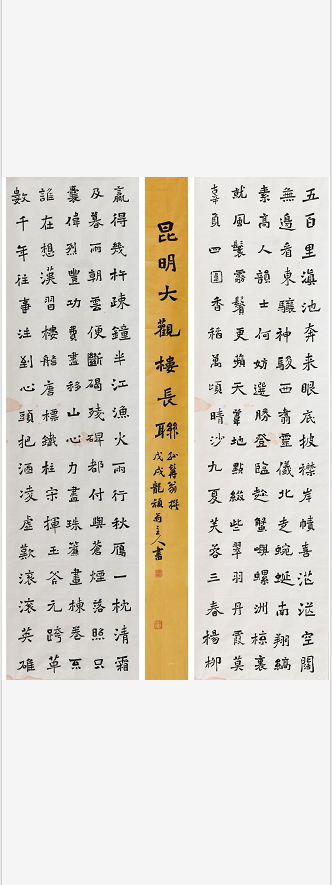 五百里滇池奔来眼底披襟岸幘喜茫茫空闊
無邊看東驤神駿西翥靈儀北走蜿蜒南翔縞
素高人韻士何妨選勝登臨趁蟹嶼螺洲梳裹
就風鬟霧鬢更蘋天葦地點綴些翠羽丹霞莫
辜負四圍香稻萬頃晴沙九夏芙蓉三春楊柳
昆明大觀樓長聯
孫髯翁撰
戊戌龍主人書
數千年往事注到心頭把酒凌虛歎滾滾英雄
誰在想漢習樓船唐標鐵柱宋揮玉斧元跨革
囊偉烈豐功費盡移山心力盡珠簾畫棟卷不
及暮雨朝雲便斷碣殘碑都付與蒼煙落照只
贏得幾杵疎鐘半江漁火兩行秋鴈一枕清霜